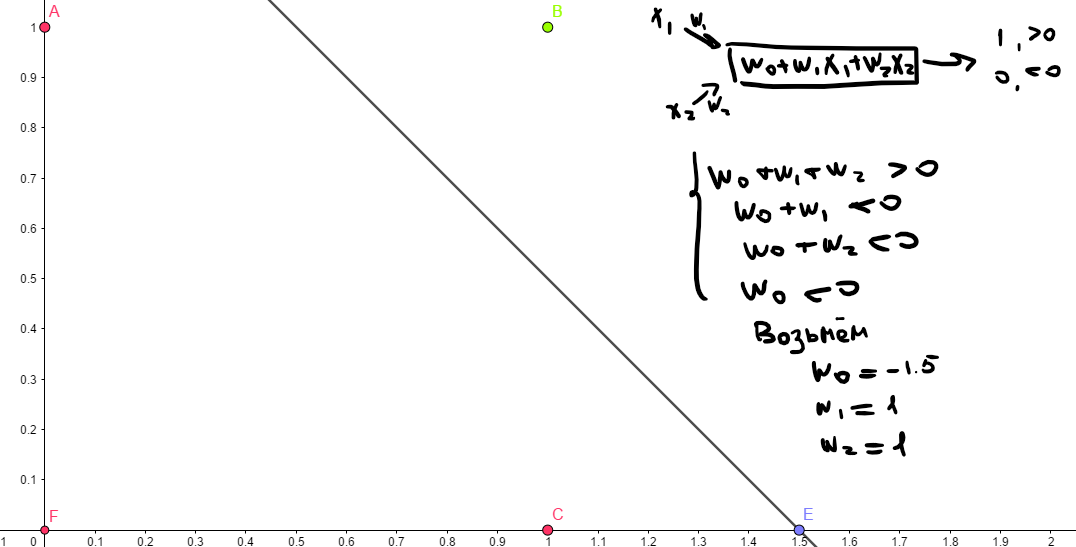 A
B
1
0.9
0.8
0.7
0.6
0.5
0.4
0.3
0.2
0.1
F
C
E
1 0 0.1 0.2 0.3 0.4 0.5 0.6 0.7 0.8 0.9 1 1.1 1.2 1.3 1.4 1.5 1.6 1.7 1.8 1.9 2
x₁ w₁
w₀+w₁x₁+w₂x₂
1, >0
0, <0
x₂ w₂
w₀+w₁+w₂ >0
w₀+w₁ <0
w₀+w₂ <0
w₀ <0
Возьмём
w₀ = -1.5
w₁ = 1
w₂ = 1